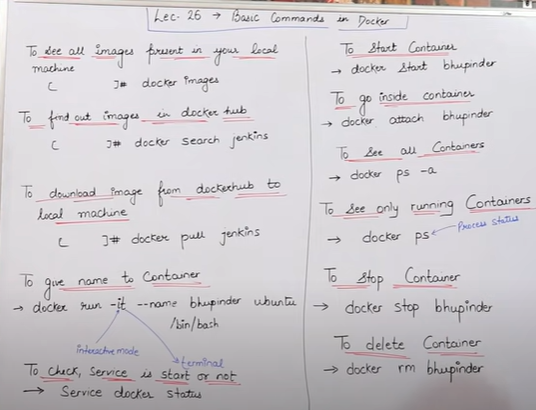 Lec. 26 → Basic Commands in Docker
To see all images present in your local
machine
[ ]# docker images
To find out images in docker hub
[ ]# docker search jenkins
To download image from dockerhub to
local machine
[ ]# docker pull jenkins
To give name to Container
→ docker run -it --name bhupinder ubuntu
/bin/bash
interactive mode
terminal
To check, service is start or not
→ Service docker status
To Start Container
→ docker start bhupinder
To go inside container
→ docker attach bhupinder
To see all Containers
→ docker ps -a
To see only running Containers
→ docker ps
Process status
To Stop Container
→ docker stop bhupinder
To delete Container
→ docker rm bhupinder